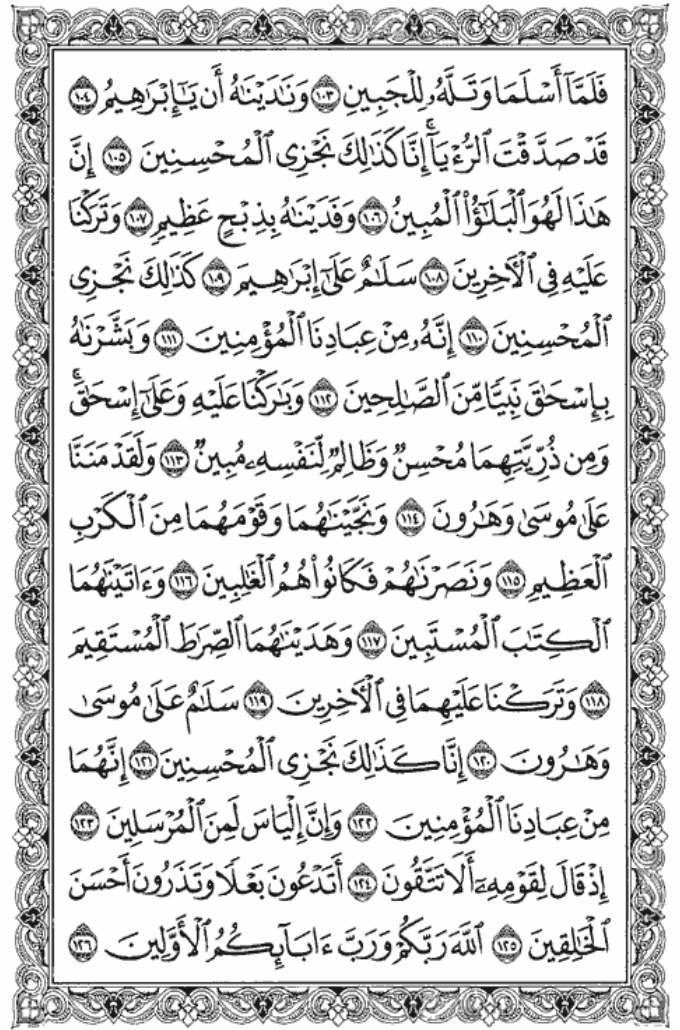 فَلَمَّآ أَسْلَمَا وَتَلَّهُۥ لِلْجَبِينِ ١٠٣ وَنَٰدَيْنَٰهُ أَن يَٰٓإِبْرَٰهِيمُ ١٠٤
قَدْ صَدَّقْتَ ٱلرُّءْيَآۚ إِنَّا كَذَٰلِكَ نَجْزِى ٱلْمُحْسِنِينَ ١٠٥ إِنَّ
هَٰذَا لَهُوَ ٱلْبَلَٰٓؤُا۟ ٱلْمُبِينُ ١٠٦ وَفَدَيْنَٰهُ بِذِبْحٍ عَظِيمٍ ١٠٧ وَتَرَكْنَا
عَلَيْهِ فِى ٱلْءَاخِرِينَ ١٠٨ سَلَٰمٌ عَلَىٰٓ إِبْرَٰهِيمَ ١٠٩ كَذَٰلِكَ نَجْزِى
ٱلْمُحْسِنِينَ ١١٠ إِنَّهُۥ مِنْ عِبَادِنَا ٱلْمُؤْمِنِينَ ١١١ وَبَشَّرْنَٰهُ
بِإِسْحَٰقَ نَبِيًّا مِّنَ ٱلصَّٰلِحِينَ ١١٢ وَبَٰرَكْنَا عَلَيْهِ وَعَلَىٰٓ إِسْحَٰقَۚ
وَمِن ذُرِّيَّتِهِمَا مُحْسِنٌ وَظَالِمٌ لِّنَفْسِهِۦ مُبِينٌ ١١٣ وَلَقَدْ مَنَنَّا
عَلَىٰ مُوسَىٰ وَهَٰرُونَ ١١٤ وَنَجَّيْنَٰهُمَا وَقَوْمَهُمَا مِنَ ٱلْكَرْبِ
ٱلْعَظِيمِ ١١٥ وَنَصَرْنَٰهُمْ فَكَانُوا۟ هُمُ ٱلْغَٰلِبِينَ ١١٦ وَءَاتَيْنَٰهُمَا
ٱلْكِتَٰبَ ٱلْمُسْتَبِينَ ١١٧ وَهَدَيْنَٰهُمَا ٱلصِّرَٰطَ ٱلْمُسْتَقِيمَ
١١٨ وَتَرَكْنَا عَلَيْهِمَا فِى ٱلْءَاخِرِينَ ١١٩ سَلَٰمٌ عَلَىٰ مُوسَىٰ
وَهَٰرُونَ ١٢٠ إِنَّا كَذَٰلِكَ نَجْزِى ٱلْمُحْسِنِينَ ١٢١ إِنَّهُمَا
مِنْ عِبَادِنَا ٱلْمُؤْمِنِينَ ١٢٢ وَإِنَّ إِلْيَاسَ لَمِنَ ٱلْمُرْسَلِينَ ١٢٣
إِذْ قَالَ لِقَوْمِهِۦٓ أَلَا تَتَّقُونَ ١٢٤ أَتَدْعُونَ بَعْلًا وَتَذَرُونَ أَحْسَنَ
ٱلْخَٰلِقِينَ ١٢٥ ٱللَّهَ رَبَّكُمْ وَرَبَّ ءَابَآئِكُمُ ٱلْأَوَّلِينَ ١٢٦